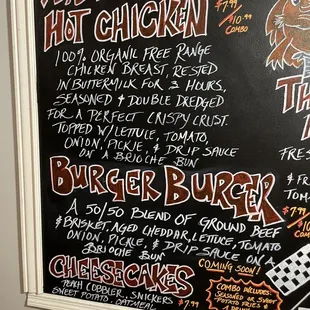 HOT CHICKEN
$7.99
$10.99
COMBO
100% ORGANIC FREE RANGE
CHICKEN BREAST, RESTED
IN BUTTERMILK FOR 3 HOURS,
SEASONED & DOUBLE DREDGED
FOR A PERFECT CRISPY CRUST.
TOPPED W/LETTUCE, TOMATO,
ONION, PICKLE, & DRIP SAUCE
ON A BRIOCHE BUN
TH
FRES
BURGER BURGER
& FR
TOM
$7.99
A 50/50 BLEND OF GROUND BEEF
& BRISKET, AGED CHEDDAR, LETTUCE, TOMATO
ONION, PICKLE, & DRIP SAUCE ON A
BRIOCHE BUN
COMING SOON!
CHEESECAKES
PEACH COBBLER, SNICKERS
SWEET POTATO, OATMEAL
$7.99
COMBO INCLUDES:
SEASONED OR SWEET
POTATO FRIES &
A DRINK